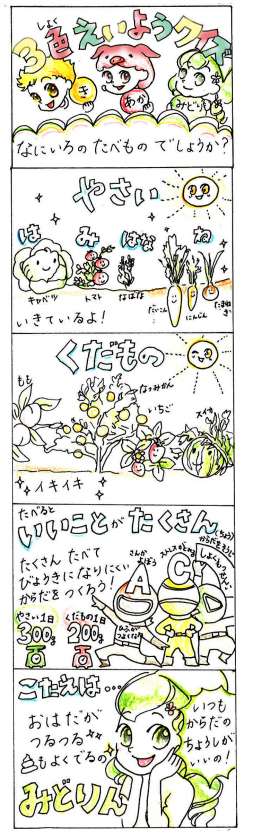 3色えいようクイズ
しょく
き
あか
みどり
なにいろの たべもの でしょうか?
やさい
は み はな ね
キャベツ
トマト
なばな
だいこん
にんじん
たまねぎ
いきているよ!
くだもの
もも
なつみかん
いちご
スイカ
イキイキ
たべると
いいことが たくさん
たくさん たべて
びょうきになりにくい
からだを つくろう!
A
C
やさい1日
300g
くだもの1日
200g
こたえは…
おはだが
つるつる
もよくでるの
みどりん
いつも
からだの
ちょうしが
いいの!